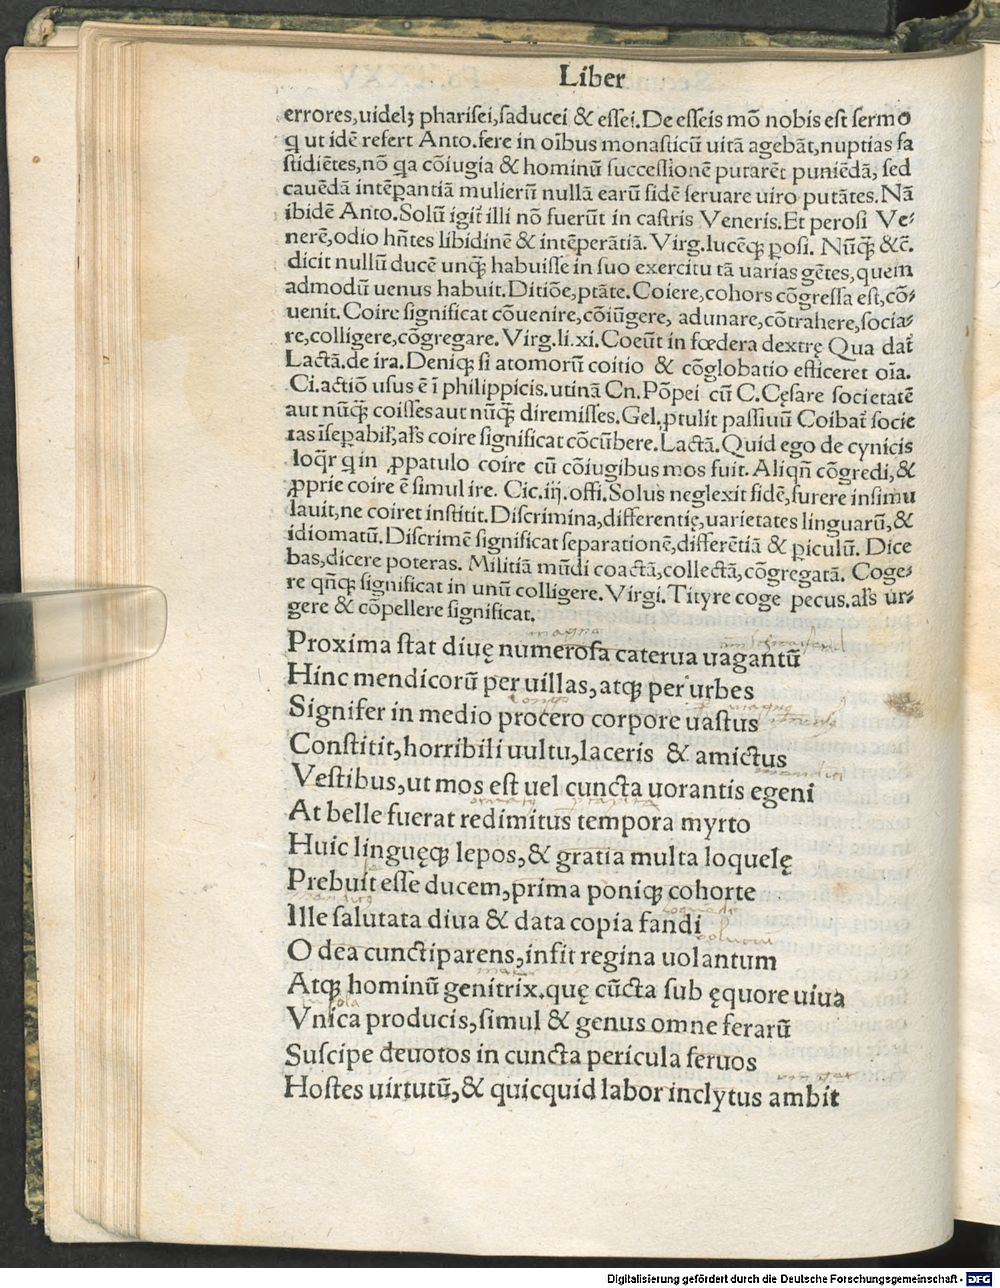 Liber
errores,uidelꝫ pharisei,saducei & essei.De esseis mō nobis est sermo
q̨ ut idē refert Anto.fere in oībus monasticū uitā agebāt,nuptias fa
stidiētes,nō qa cōiugia & hominū successionē putarēt puniēdā, sed
cauēdā intēꝑantiā mulierū nullā earū fidē seruare uiro putātes.Nā
ibidē Anto.Solū igit̄ illi nō fuerūt in castris Veneris.Et perosi Ve⸗
nerē,odio hn̄tes libidinē & intēperātiā. Virg.lucēqꝫ posi. Nūqꝫ &c̄.
dicit nullū ducē unqꝫ habuisse in suo exercitu tā uarias gētes,quem
admodū uenus habuit.Ditiōe,ptāte.Coiere,cohors cōgressa est,cō⸗
uenit.Coire significat cōuenire,cōiūgere, adunare,cōtrahere,socia⸗
re,colligere,cōgregare. Virg.li.xi.Coeūt in fœdera dextrę Qua dat̄
Lactā.de ira.Deniqꝫ si atomorū coitio & cōglobatio efficeret oīa.
Ci.actiō usus ē ī philippicis.utinā Cn.Pōpei cū C.Cęsare societatē
aut nūqꝫ coisses aut nūqꝫ diremisses.Gel.ꝓtulit passiuū Coibat̄ socie
tas īseꝑabił.ałs coire significat cōcūbere.Lactā.Quid ego de cynicis
loq̄r q in ꝓpatulo coire cū cōiugibus mos fuit. Aliqn̄ cōgredi,&
ꝓprie coire ē simul ire. Cic.iij.offi.Solus neglexit fidē,furere insimu
lauit,ne coiret institit.Discrimina,differentię,uarietates linguarū,&
idiomatū.Discrimē significat separationē,differētiā & ꝑiculū. Dice
bas,dicere poteras. Militiā mūdi coactā,collectā,cōgregatā. Coge⸗
re qn̄qꝫ significat in unū colligere. Virgi.Tityre coge pecus.ałs ur⸗
gere & cōpellere significat.
magna
Proxima stat diuę numerosa caterua uagantū
Hinc mendicorū per uillas,atqꝫ per urbes
longo magno
Signifer in medio procero corpore uastus
Constitit,horribili uultu,laceris & amictus
mendici
Vestibus,ut mos est uel cuncta uorantis egeni
ornatus
At belle fuerat redimitus tempora myrto
Huic linguęqꝫ lepos,& gratia multa loquelę
Prebuit esse ducem,prima poniqꝫ cohorte
Ille salutata diua & data copia fandi
O dea cunctiparens,infit regina uolantum
mater
Atqꝫ hominū genitrix.quę cūcta sub ęquore uiua
tu sola
Vnica producis,simul & genus omne ferarū
Suscipe deuotos in cuncta pericula seruos
Hostes uirtutū,& quicquid labor inclytus ambit
Digitalisierung gefördert durch die Deutsche Forschungsgemeinschaft - DFG